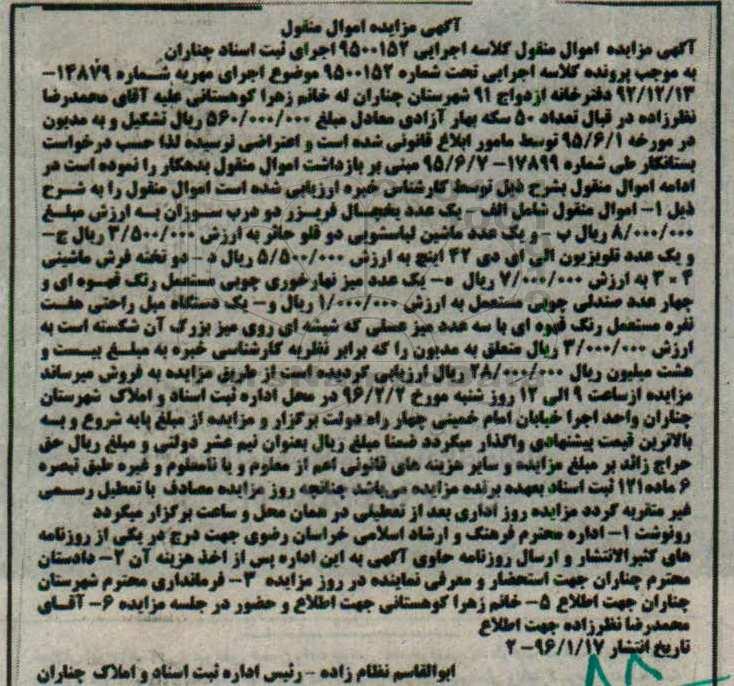 آگهی مزایده اموال منقول
آگهی مزایده اموال منقول کلاسه اجرایی ۹۵۰۰۱۵۲ اجرای ثبت اسناد چناران
به موجب پرونده کلاسه اجرایی تحت شماره ۹۵۰۰۱۵۲ موضوع اجرای مهریه شماره ۱۴۸۷۹-
۹۲/۱۲/۱۳ دفترخانه ازدواج ۹۱ شهرستان چناران له خانم زهرا کوهستانی علیه آقای محمدرضا
نظرزاده در قبال تعداد ۵۰ سکه بهار آزادی معادل مبلغ ۵۶۰/۰۰۰/۰۰۰ ریال تشکیل و به مدیون
در مورخه ۹۵/۶/۱ توسط مامور ابلاغ قانونی شده است و اعتراضی نرسیده لذا حسب درخواست
بستانکار طی شماره ۱۷۸۹۹- ۹۵/۶/۷ مبنی بر بازداشت اموال منقول بدهکار را نموده است در
ادامه اموال منقول بشرح ذیل توسط کارشناس خبره ارزیابی شده است اموال منقول را به شرح
ذیل ۱- اموال منقول شامل الف - یک عدد یخچال فریزر دو درب سوزان به ارزش مبلغ
۸/۰۰۰/۰۰۰ ریال ب - و یک عدد ماشین لباسشویی دو قلو حائر به ارزش ۳/۵۰۰/۰۰۰ ریال ج-
و یک عدد تلویزیون الی ای دی ۴۲ اینچ به ارزش ۵/۵۰۰/۰۰۰ ریال د- دو تخته فرش ماشینی
۴ * ۳ به ارزش ۷/۰۰۰/۰۰۰ ریال ه- یک عدد میز نهارخوری چوبی مستعمل رنگ قهوه ای و
چهار عدد صندلی چوبی مستعمل به ارزش ۱/۰۰۰/۰۰۰ ریال و- یک دستگاه مبل راحتی هفت
نفره مستعمل رنگ قهوه ای با سه عدد میز عسلی که شیشه ای روی میز بزرگ آن شکسته است به
ارزش ۳/۰۰۰/۰۰۰ ریال متعلق به مدیون را که برابر نظریه کارشناسی خبره به مبلغ بیست و
هشت میلیون ریال ۲۸/۰۰۰/۰۰۰ ریال ارزیابی گردیده است از طریق مزایده به فروش میرساند
مزایده ازساعت ۹ الی ۱۲ روز شنبه مورخ ۹۶/۲/۲ در محل اداره ثبت اسناد و املاک شهرستان
چناران واحد اجرا خیابان امام خمینی چهار راه دولت برگزار و مزایده از مبلغ پایه شروع و به
بالاترین قیمت پیشنهادی واگذار میگردد ضمنا مبلغ ریال بعنوان نیم عشر دولتی و مبلغ ریال حق
حراج زائد بر مبلغ مزایده و سایر هزینه های قانونی اعم از معلوم و یا نامعلوم و غیره طبق تبصره
۶ ماده۱۲۱ ثبت اسناد بعهده برنده مزایده می‌باشد چنانچه روز مزایده مصادف با تعطیل رسمی
غیر مترقبه گردد مزایده روز اداری بعد از تعطیلی در همان محل و ساعت برگزار میگردد
رونوشت ۱- اداره محترم فرهنگ و ارشاد اسلامی خراسان رضوی جهت درج در یکی از روزنامه
های کثیرالانتشار و ارسال روزنامه حاوی آگهی به این اداره پس از اخذ هزینه آن ۲- دادستان
محترم چناران جهت استحضار و معرفی نماینده در روز مزایده ۳- فرمانداری محترم شهرستان
چناران جهت اطلاع ۵- خانم زهرا کوهستانی جهت اطلاع و حضور در جلسه مزایده ۶- آقای
محمدرضا نظرزاده جهت اطلاع
تاریخ انتشار ۹۶/۱/۱۷- ۲
ابوالقاسم نظام زاده - رئیس اداره ثبت اسناد و املاک چناران